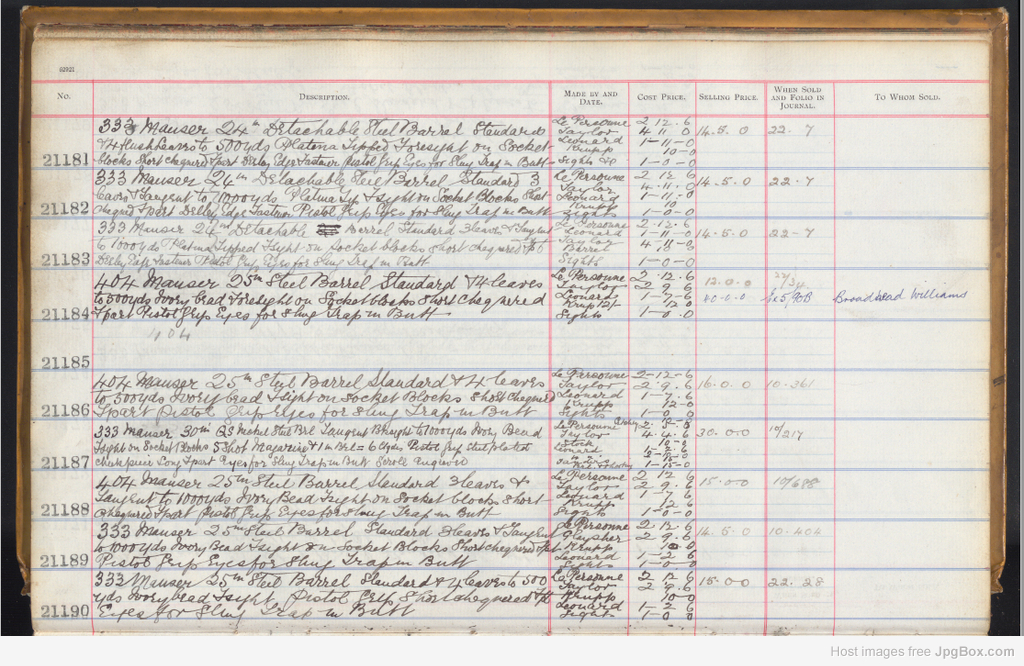 No. DESCRIPTION. MADE BY AND DATE. COST PRICE. SELLING PRICE. WHEN SOLD AND FOLIO IN JOURNAL. TO WHOM SOLD.
333 Mauser 24in Detachable Steel Barrel Standard Le Personne 2 12 6
& 4 flush leaves to 500yds Platena Tipped Foresight on Socket Taylor 4 11 0 14.5.0 22.7
Leonard 1-11-0
Krupp 10-0
21181 blocks Short chequered Fpart Pistol Grip Eyes for Sling Trap in Butt Sights 1-0-0
333 Mauser 24in Detachable Steel Barrel Standard 3 Le Personne 2 12 6
Leaves & Tangent to 1000yds on Socket Blocks Short Taylor 4-11-0 14-5-0 22.7
Leonard 1-11-0
Krupp 10
21182 chequered Fpart Pistol Grip Eyes for Sling Trap in Butt Sights 1-0-0
333 Mauser 24in Detachable Barrel Standard 3 leaves & Tangent Le Personne 2-12-6
Leonard 1-11-0 14-5-0 22-7
to 1000yds Platena Tipped Fsight on Socket blocks Short chequered Taylor 4-11-0
Barrel
21183 Pistol Grip Eyes for Sling Trap in Butt Sights 1-0-0
404 Mauser 25in Steel Barrel Standard & 4 leaves Le Personne 2 12 6
Taylor 2 9 6
to 500yds Ivory bead Foresight on Socket blocks Short Chequered Leonard 1-7-6 40-0-0 Broadhead Williams
Krupp 12 6
21184 Fpart Pistol Grip Eyes for Sling Trap in Butt Sights 1-0-0
404
21185
404 Mauser 25in Steel Barrel Standard & 4 leaves Le Personne 2-12-6
Taylor 2.9.6 16.0.0 10.361
to 500yds Ivory bead Fsight on Socket Blocks Short Chequered Leonard 1-7.6
Krupp 12-0
21186 Fpart Pistol Grip Eyes for Sling Trap in Butt Sights 1-0-0
333 Mauser 30in Nickel Steel Brl Tangent Bksight to 1000yds Ivory Bead Le Personne
Taylor 4.4.6 30.0.0 10/217
Fsight on Socket Blocks 5 Shot Magazine & 1 in Brl = 6 Pistol Grip
Leonard
21187 cheekpiece Long Fpart Eyes for Sling Trap in Butt Scroll engraved 1-15-0
404 Mauser 25in Steel Barrel Standard 3 leaves & Le Personne 2 12 6
Taylor 2 9 6 15.0.0 10/688
Tangent to 1000yds Ivory Bead Fsight on Socket blocks Short Leonard 1-7 6
Krupp 12 6
21188 chequered Fpart Pistol Grip Eyes for Sling Trap in Butt Sights 1-0-0
333 Mauser 25in Steel Barrel Standard 3 leaves & Tangent Le Personne 2 12.6
Glaysher 2 9.6 14.5.0 10.404
to 1000yds Ivory Bead Fsight on Socket Blocks Short chequered Fpart Krupp 10-0
Leonard
21189 Pistol Grip Eyes for Sling Trap in Butt Sights 1-0-0
333 Mauser 25in Steel Barrel Standard & 4 leaves to 500 Le Personne 2 12 6
Taylor 2 9 6 15.0.0 22.28
yds Ivory bead Fsight Pistol Grip Short chequered Krupp 10-0
Leonard 1-2 6
21190 Eyes for Sling Trap in Butt Sights 1-0 0
Host images free JpgBox.com